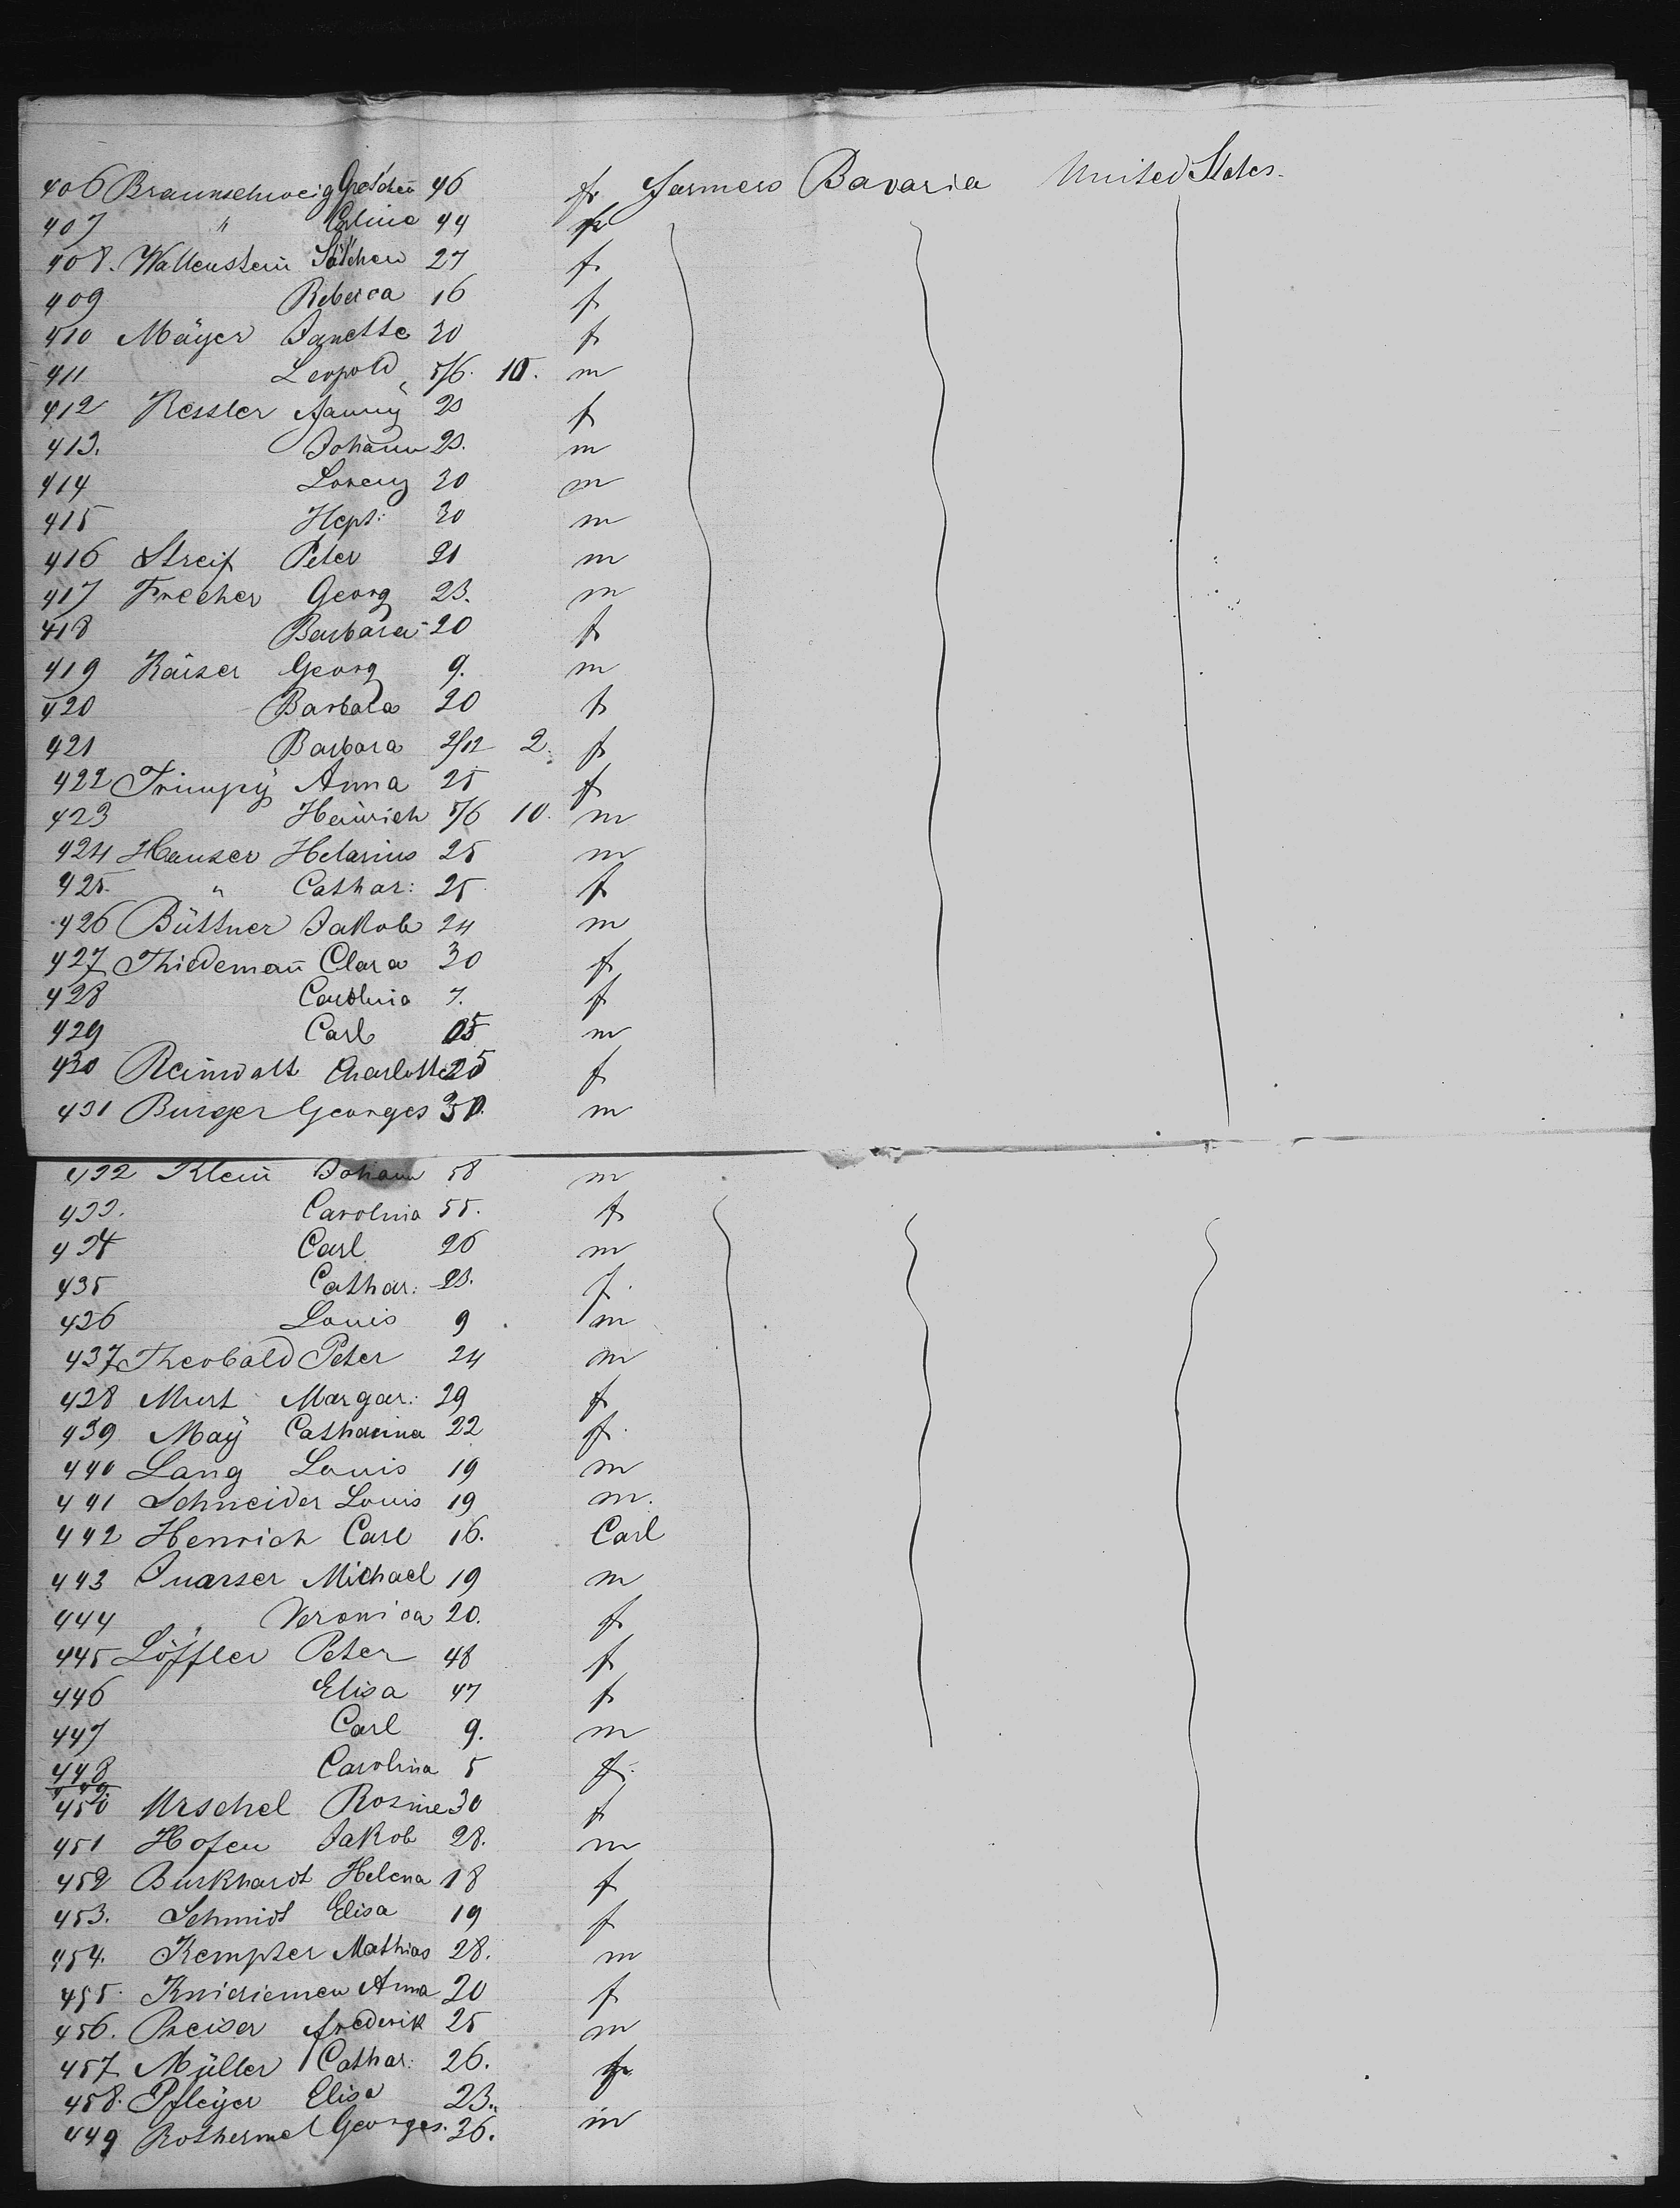 406 Braunschweig Gretchen 46 f. Farmers Bavaria United States.
407 " 44 f
408. Wallenstein 27 f.
409 Rebecca 16 f
410 Mäyer Janette 30 f
411 Leopold 5/6. 10. m
412 Kessler Fanny 23 f
413. Johann 23. m
414 Lorenz 30 m
415 Heps: 30 m
416 Streif Peter 21 m
417 Frecher Georg 23. m
418 Barbara 20 f
419 Kaiser Georg 9. m
420 Barbara 20 f
421 Barbara 2/12 2. f
422 Trümpÿ Anna 25 f
423 Heinrich 5/6 10. m
424 Hauser Helarius 25 m
425. " Cathar: 25 f
426 Büttner Jakob 24 m
427 Thiedemañ Clara 30 f
428 Carolina 7. f
429 Carl 05 m
430 Reinwalt Charlotte 25 f
431 Burger Georges 30. m
432 Klein Johann 58 m
433. Carolina 55. f
434 Carl 26 m
435 Cathar: 23. f.
436 Louis 9 m
437 Theobald Peter 24 m
438 Murt Margar: 29 f
439 Maÿ Catharina 22 f.
440 Lang Louis 19 m
441 Schneider Louis 19 m.
442 Henrich Carl 16. Carl
443 Juarser Michael 19 m
444 " Veronica 20. f
445 Löffler Peter 48 f
446 Elisa 47 f
447 Carl 9. m
448 Carolina 5 f.
449.
450 Urschel Rosine 30 f
451 Hofen Jakob 28. m
452 Burkhardt Helena 18 f
453. Schmidt Elisa 19 f
454. Kempter Mathias 28. m
455. Knieriemen Anna 20 f
456. Preiser Frederik 25 m
457 Müller Cathar: 26. f
458. Pfleÿer Elisa 23.,
449 Rothermel Georges. 36. m